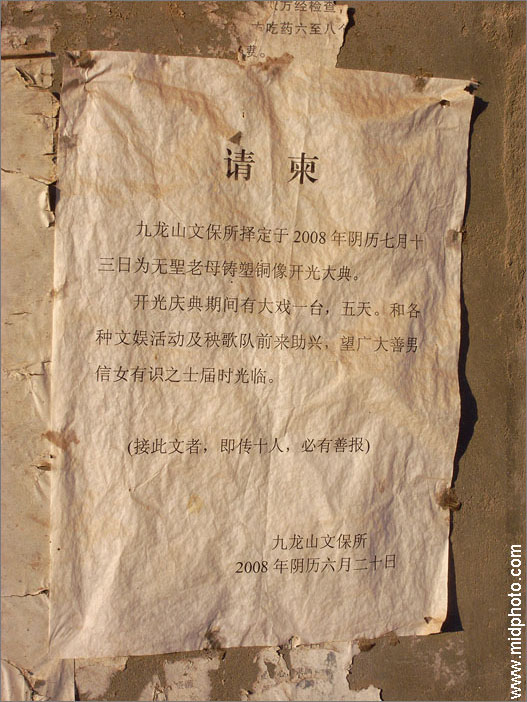 方经检查，
吃药六至八个
请 柬
九龙山文保所择定于 2008 年阴历七月十
三日为无聖老母铸塑铜像开光大典。
开光庆典期间有大戏一台，五天。和各
种文娱活动及秧歌队前来助兴，望广大善男
信女有识之士届时光临。
(接此文者，即传十人，必有善报)
九龙山文保所
2008 年阴历六月二十日
www.midphoto.com